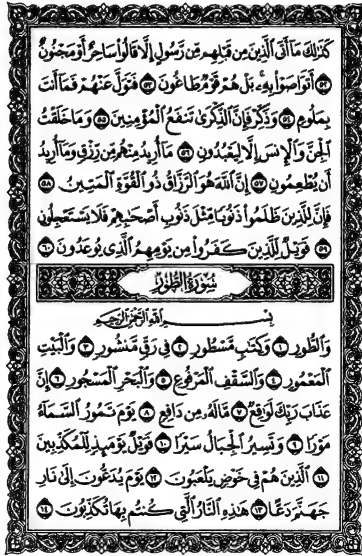 كَذَٰلِكَ مَا أَتَى ٱلَّذِينَ مِن قَبْلِهِم مِّن رَّسُولٍ إِلَّا قَالُوا۟ سَاحِرٌ أَوْ مَجْنُونٌ
٥٢ أَتَوَاصَوْا۟ بِهِۦ ۚ بَلْ هُمْ قَوْمٌ طَاغُونَ ٥٣ فَتَوَلَّ عَنْهُمْ فَمَا أَنتَ
بِمَلُومٍ ٥٤ وَذَكِّرْ فَإِنَّ ٱلذِّكْرَىٰ تَنفَعُ ٱلْمُؤْمِنِينَ ٥٥ وَمَا خَلَقْتُ
ٱلْجِنَّ وَٱلْإِنسَ إِلَّا لِيَعْبُدُونِ ٥٦ مَا أُرِيدُ مِنْهُم مِّن رِّزْقٍ وَمَا أُرِيدُ
أَن يُطْعِمُونِ ٥٧ إِنَّ ٱللَّهَ هُوَ ٱلرَّزَّاقُ ذُو ٱلْقُوَّةِ ٱلْمَتِينُ ٥٨
فَإِنَّ لِلَّذِينَ ظَلَمُوا۟ ذَنُوبًا مِّثْلَ ذَنُوبِ أَصْحَٰبِهِمْ فَلَا يَسْتَعْجِلُونِ
٥٩ فَوَيْلٌ لِّلَّذِينَ كَفَرُوا۟ مِن يَوْمِهِمُ ٱلَّذِى يُوعَدُونَ ٦٠
سُورَةُ الطُّورِ
بِسْمِ ٱللَّهِ ٱلرَّحْمَٰنِ ٱلرَّحِيمِ
وَٱلطُّورِ ١ وَكِتَٰبٍ مَّسْطُورٍ ٢ فِى رَقٍّ مَّنشُورٍ ٣ وَٱلْبَيْتِ
ٱلْمَعْمُورِ ٤ وَٱلسَّقْفِ ٱلْمَرْفُوعِ ٥ وَٱلْبَحْرِ ٱلْمَسْجُورِ ٦ إِنَّ
عَذَابَ رَبِّكَ لَوَٰقِعٌ ٧ مَّا لَهُۥ مِن دَافِعٍ ٨ يَوْمَ تَمُورُ ٱلسَّمَآءُ
مَوْرًا ٩ وَتَسِيرُ ٱلْجِبَالُ سَيْرًا ١٠ فَوَيْلٌ يَوْمَئِذٍ لِّلْمُكَذِّبِينَ
١١ ٱلَّذِينَ هُمْ فِى خَوْضٍ يَلْعَبُونَ ١٢ يَوْمَ يُدَعُّونَ إِلَىٰ نَارِ
جَهَنَّمَ دَعًّا ١٣ هَٰذِهِ ٱلنَّارُ ٱلَّتِى كُنتُم بِهَا تُكَذِّبُونَ ١٤